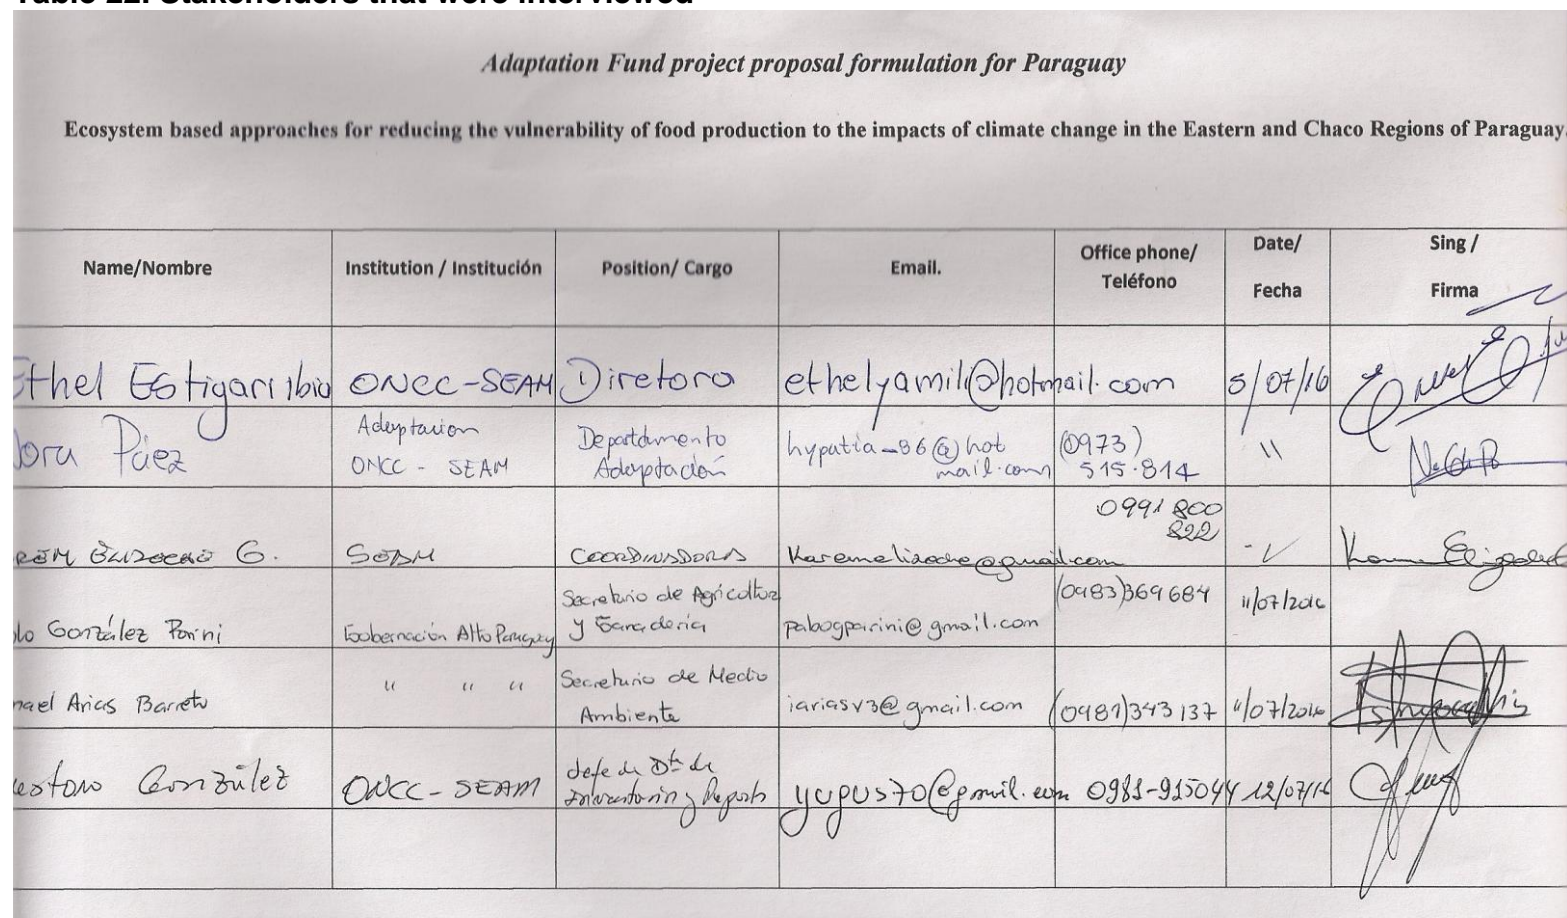 Table 22: Stakeholders that were interviewed
Adaptation Fund project proposal formulation for Paraguay
Ecosystem based approaches for reducing the vulnerability of food production to the impacts of climate change in the Eastern and Chaco Regions of Paraguay.
Name/Nombre Institution / Institución Position/ Cargo Email. Office phone/ Teléfono Date/ Fecha Sing / Firma
thel Estigarribia ONCC-SEAM Diretora ethelyamil@hotmail.com 5/07/16
ora Páez Adaptacion ONCC - SEAM Departamento Adaptación hypatia_86@hot mail.com (0973) 515.814 "
G. SEAM COORDINADORA karemelizeche@gmail.com 0991 800 822
lo González Parini Gobernación Alto Paraguay Secretario de Agricultura y Ganadería pabogparini@gmail.com (0983)369684 11/07/2016
mael Arias Barreto " " " Secretario de Medio Ambiente iariasv3@gmail.com (0981)343137 11/07/2016
González ONCC-SEAM Jefe de Dto de Inventario y Reporte yupus70@gmail.com 0981-915044 12/07/16